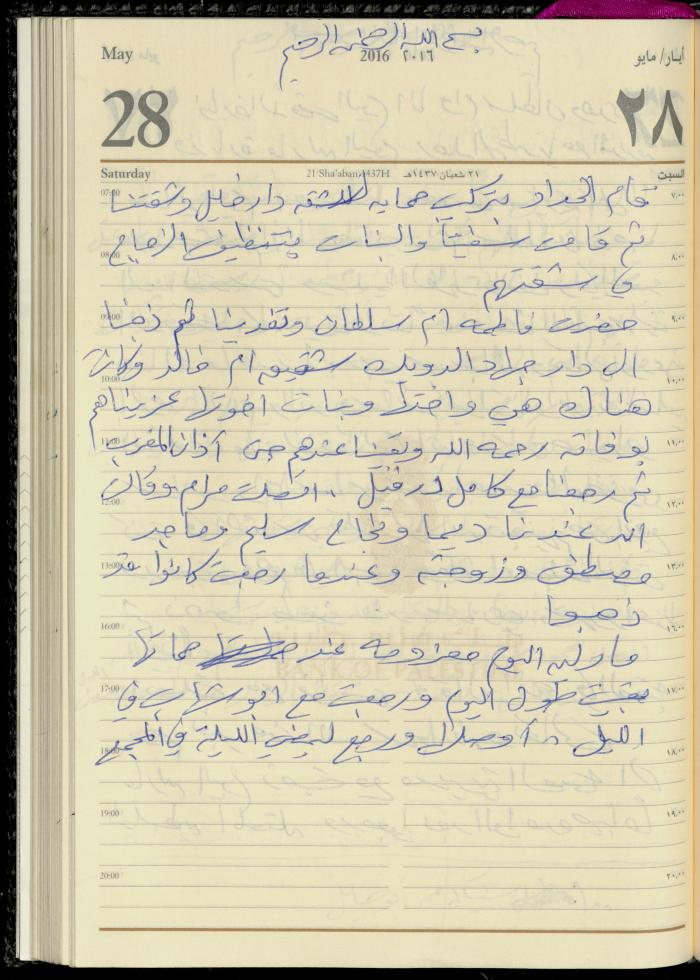 بسم الله الرحمن الرحيم
May 2016 ٢٠١٦ أيار/ مايو
28 ٢٨
Saturday 21 Sha'aban 1437H ٢١ شعبان ١٤٣٧هـ السبت
07:00 قام الحداد بتركيب حماية لشقة دار خليل وشقتنا ٧,٠٠
08:00 ثم قامت والبنات بتنظيف الزجاج ٨,٠٠
في شقتهم
09:00 حضرت فاطمه ام سلطان وتغدينا ثم ذهبنا ٩,٠٠
10:00 الى دار جهاد الدويك شقيق ام خالد وكانت ١٠,٠٠
هناك هي واختها وبنات اخوتها عزيناهم
11:00 بوفاته رحمه الله وبقينا عندهم حتى آذان المغرب ١١,٠٠
12:00 ثم رجعنا مع كامل ارفيل .. اتصلت مرام وقالت ١٢,٠٠
ان عندنا ديما ونجاح سليم وماجد
13:00 مصطفى وزوجته وعندما رجعت كانوا قد ١٣,٠٠
ذهبوا
16:00 ١٦,٠٠
مارلين اليوم معزومه عند حماتها
17:00 بقيت طول اليوم ورجعت مع ابو شهاب في ١٧,٠٠
18:00 الليل .. أوصلها ورجع ليمضي الليلة في المجمع ١٨,٠٠
19:00 ١٩,٠٠
20:00 ٢٠,٠٠